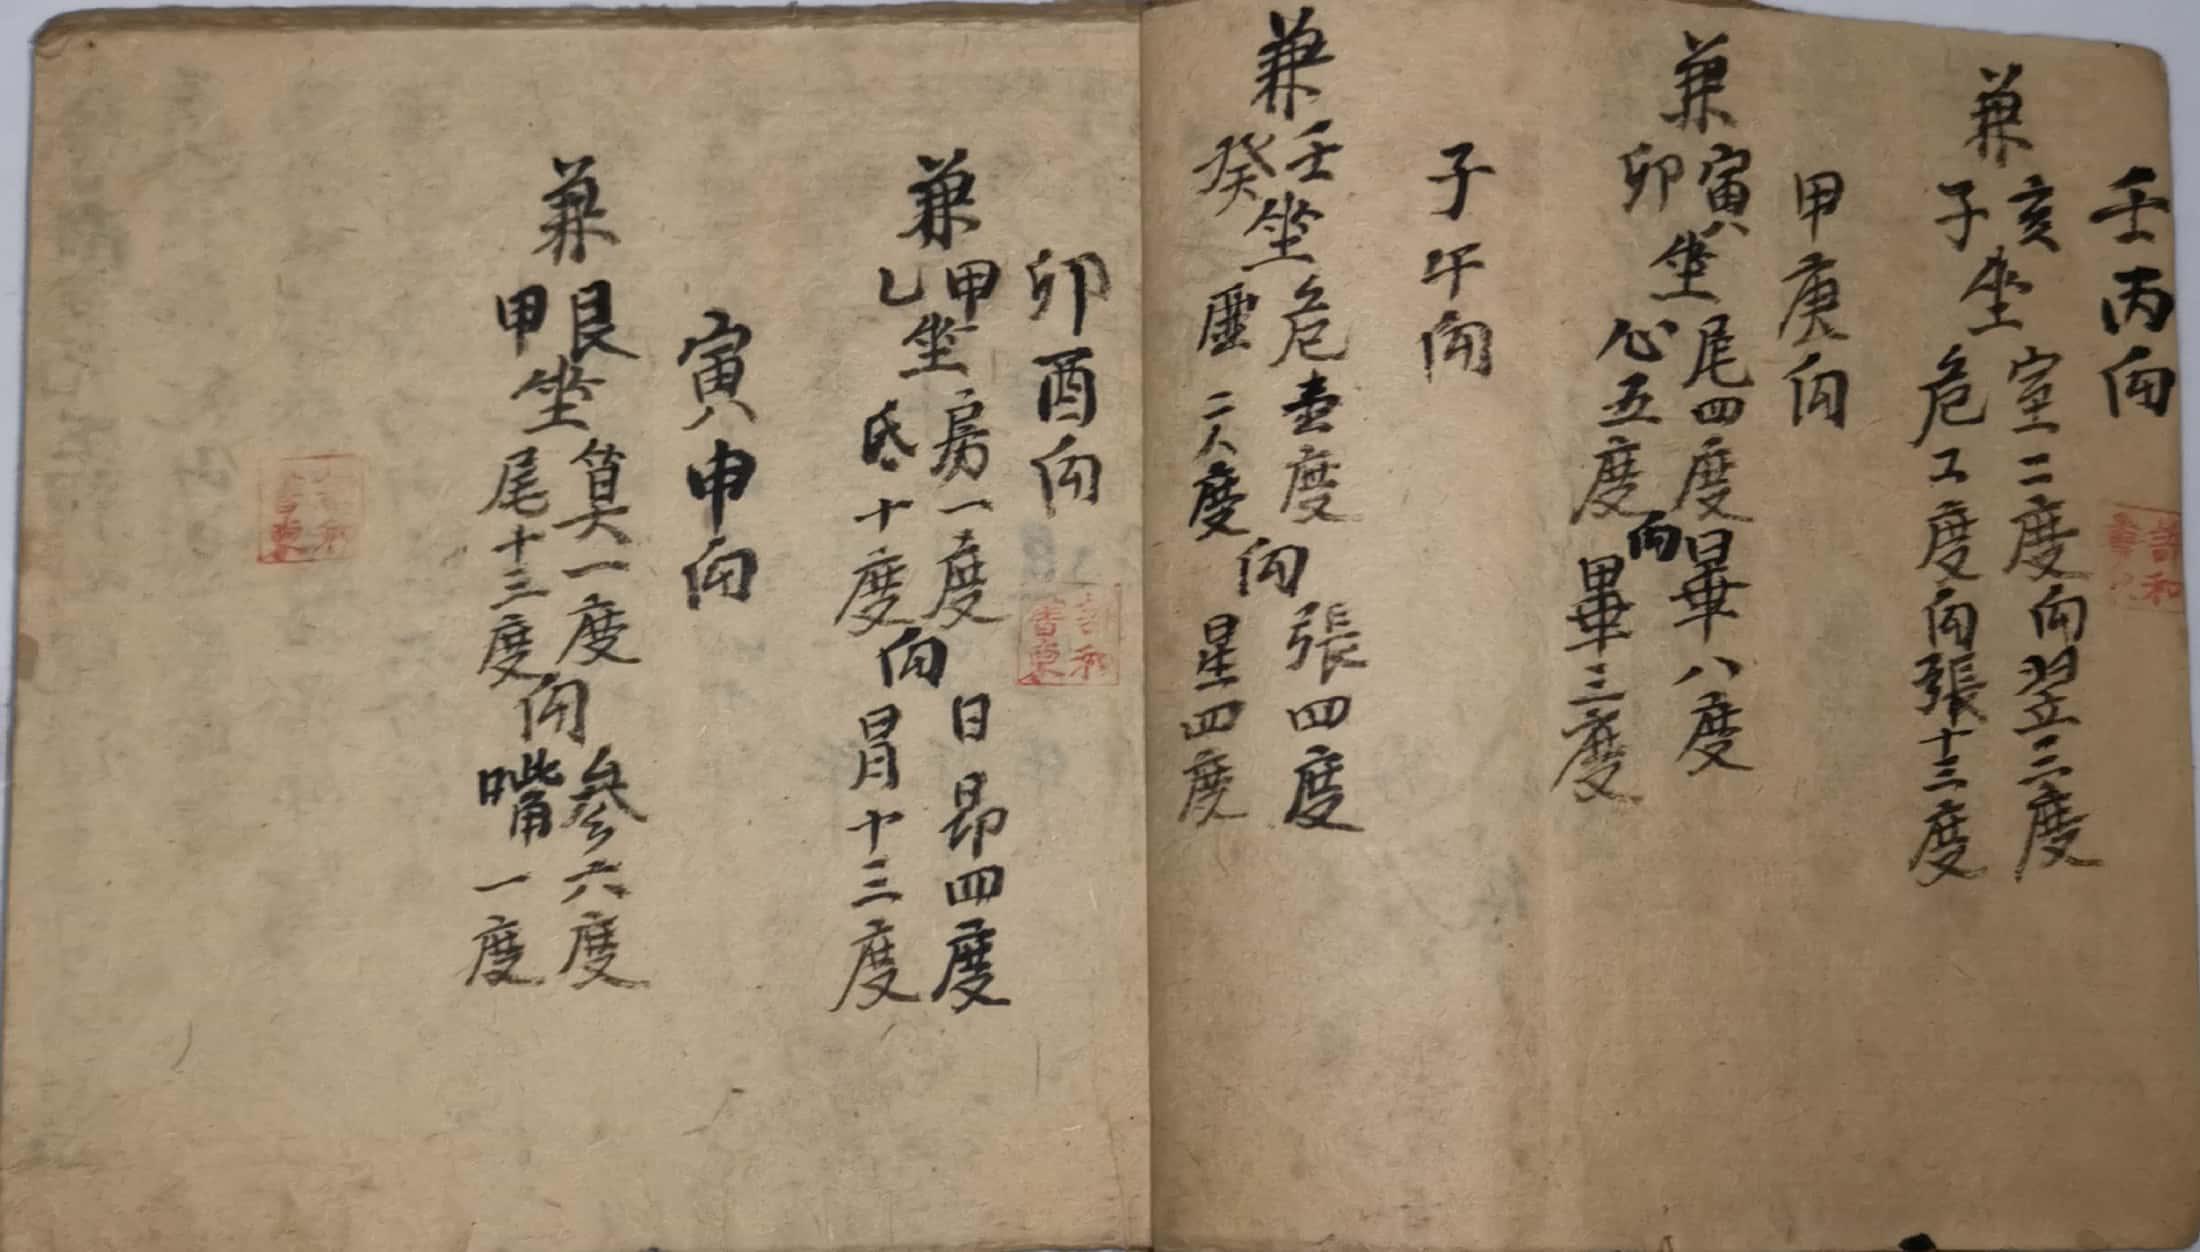 壬丙向
兼亥子坐室二度危工度向翌三度向張十三度
甲庚向
兼寅卯坐尾四度心五度向畢八度畢三度
子午向
兼壬癸坐危壹度二八度向張四度星四度
卯酉向
兼甲乙坐房一度氐十度向日昴四度胃十三度
寅申向
兼艮甲坐箕一度尾十三度向參六度嘴一度